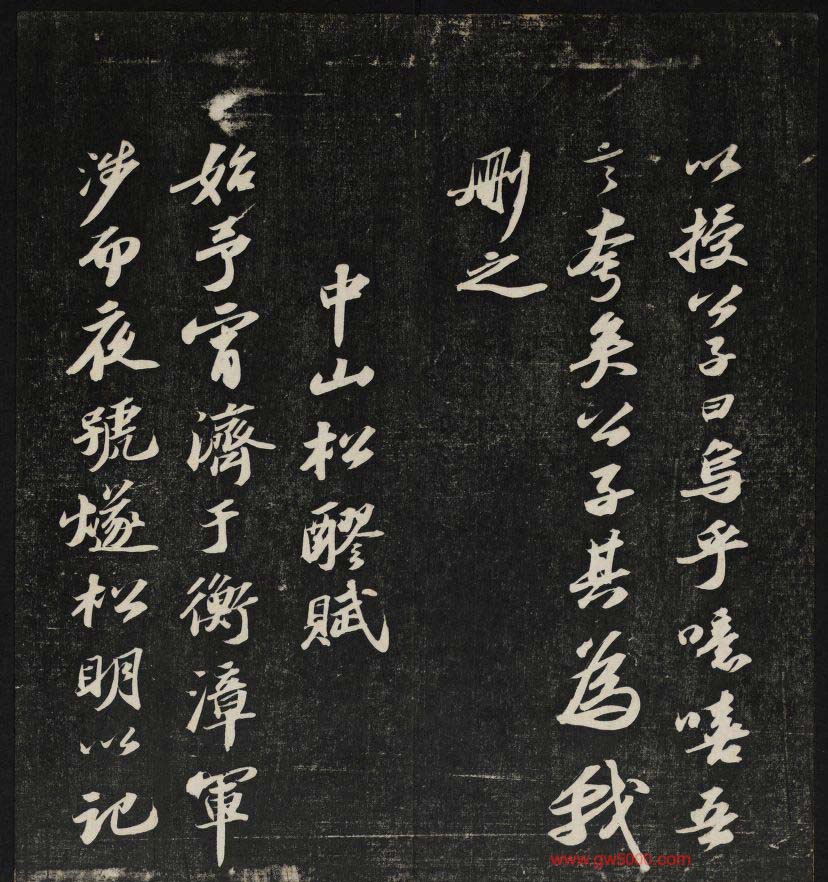 以授公子曰烏乎噫嘻吾
言夸矣公子其為我
刪之
中山松醪賦
始予宵濟于衡漳軍
涉而夜號燧松明以記
www.gw5000.com